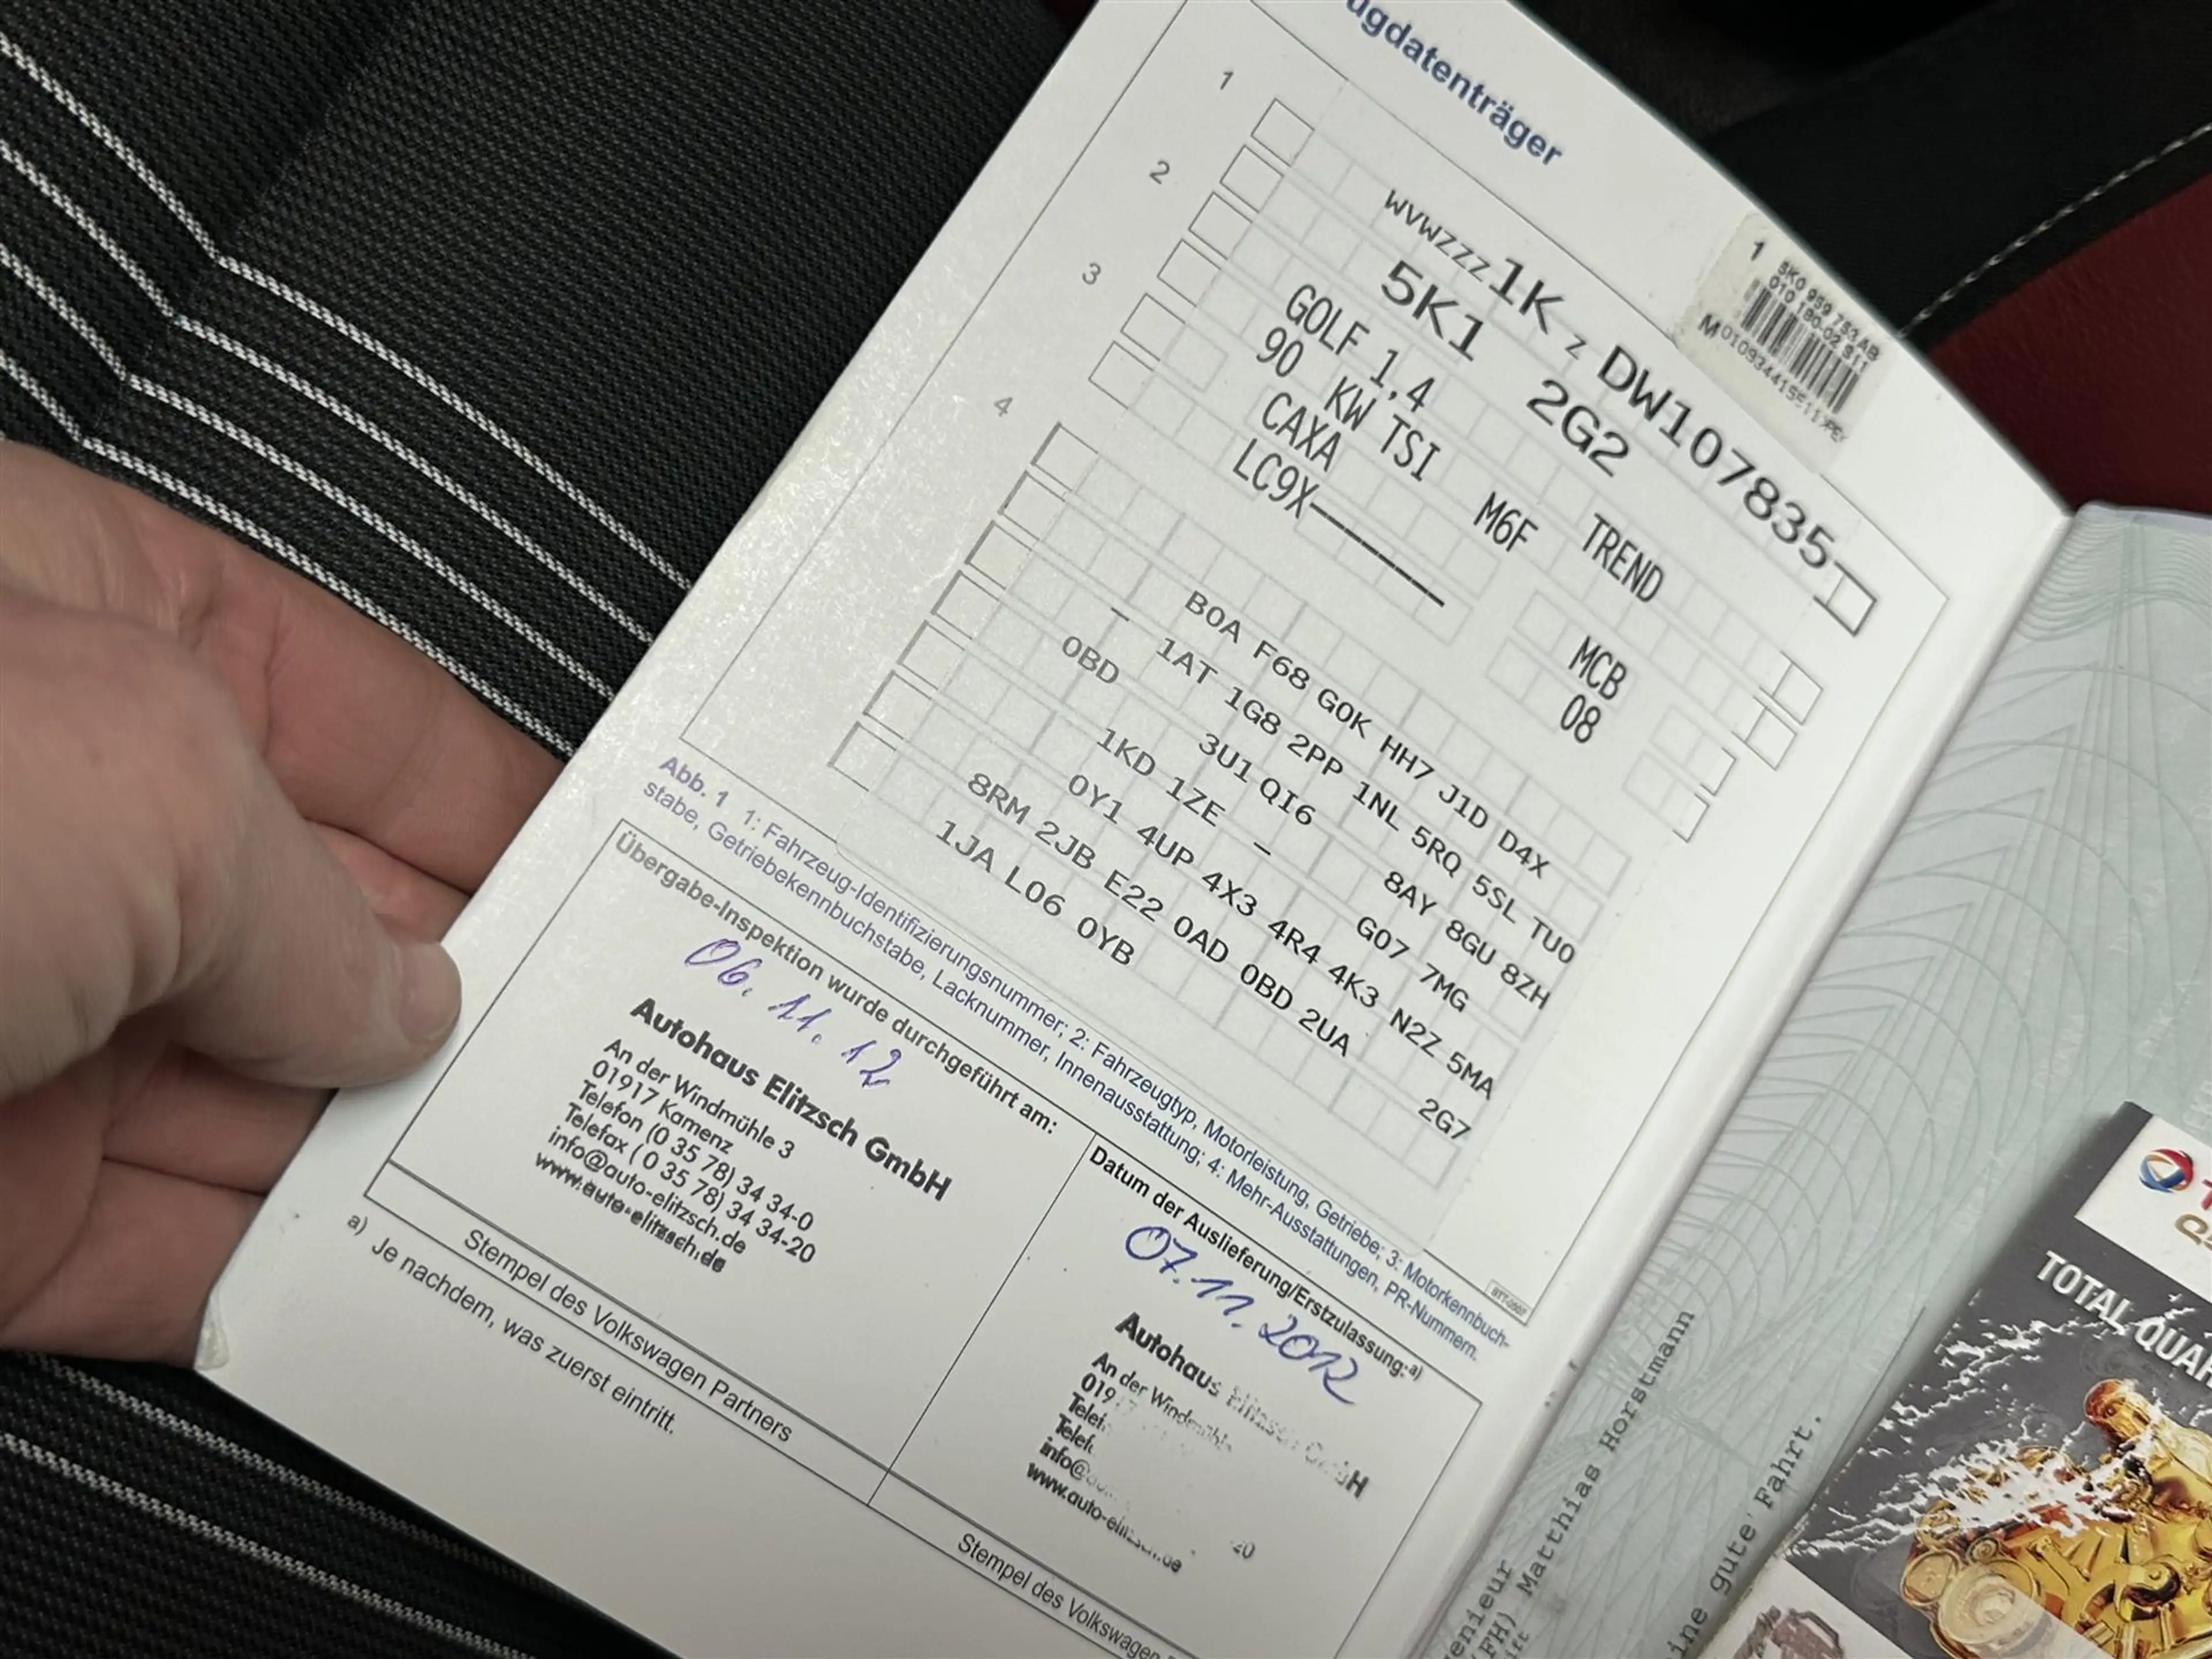 ugdatenträger
1
WVWZZZ1K Z DW107835
2
5K1 2G2
GOLF 1,4 TREND
90 KW TSI M6F
3
CAXA MCB
LC9X 08
4
B0A F68 G0K HH7 J1D D4X
- 1AT 1G8 2PP 1NL 5RQ 5SL TU0
0BD 3U1 QI6 8AY 8GU 8ZH
1KD 1ZE - G07 7MG
0Y1 4UP 4X3 4R4 4K3 N2Z 5MA
8RM 2JB E22 0AD 0BD 2UA 2G7
1JA L06 0YB
1 5K0 959 753 AB
BTT-0507
Abb. 1 1: Fahrzeug-Identifizierungsnummer; 2: Fahrzeugtyp, Motorleistung, Getriebe; 3: Motorkennbuch-
stabe, Getriebekennbuchstabe, Lacknummer, Innenausstattung; 4: Mehr-Ausstattungen, PR-Nummern.
Übergabe-Inspektion wurde durchgeführt am:
06. 11. 12
Autohaus Elitzsch GmbH
An der Windmühle 3
01917 Kamenz
Telefon (0 35 78) 34 34-0
Telefax (0 35 78) 34 34-20
info@auto-elitzsch.de
www.auto-elitzsch.de
Stempel des Volkswagen Partners
Datum der Auslieferung/Erstzulassung:a)
07.11.2012
Autohaus Elitzsch GmbH
An der Windmühle
info@
www.auto-elitzsch.de
Stempel des Volkswagen
a) Je nachdem, was zuerst eintritt.
enieur
(FH) Matthias Horstmann
ine gute Fahrt.
TOTAL QUAR